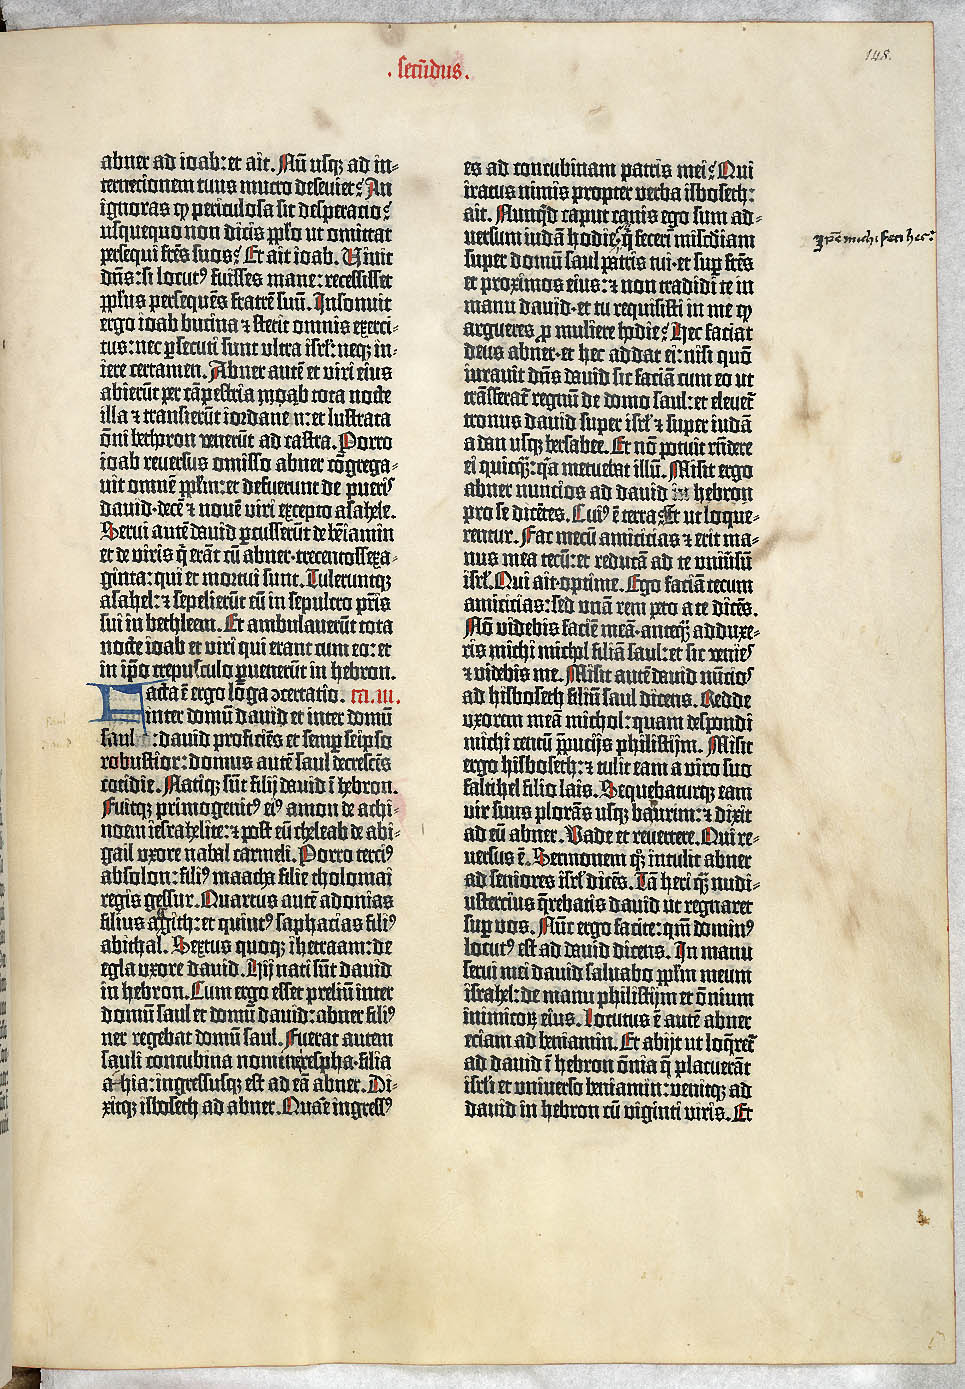 148.
. secūdus .
abner ad ioab: et ait. Nū usqꝫ ad in-
ternecionem tuus mucro deseuiet? An
ignoras ꝙ periculosa sit desperacio?
usquequo non dicis pplo ut omittat
persequi frēs suos? Et ait ioab. Vivit
dn̄s: si locutꝰ fuisses mane: recessisset
pplus persequēs fratrē suū. Insonuit
ergo ioab bucina ⁊ stetit omnis exerci-
tus: nec ꝑsecuti sunt ultra isrl̄: neqꝫ in-
iere certamen. Abner autē et viri eius
abierūt per cāpestria moab tota nocte
illa ⁊ transierūt iordanen: et lustrata
ōni bethoron venerūt ad castra. Porro
ioab reversus omisso abner cōgrega-
vit omnē pplm: et defuerunt de pueriꝰ
david · decē ⁊ novē viri excepto asahele.
Servi autē david ꝑcusserūt de bēiamin
et de viris q̄ erāt cū abner · trecentossexa-
ginta: qui et mortui sunt. Tuleruntqꝫ
asahel: ⁊ sepelierūt eū in sepulcro pr̄is
sui in bethleem. Et ambulaverūt tota
nocte ioab et viri qui erant cum eo: et
in ip̄o crepusculo ꝑvenerūt in hebron.
Facta ē ergo lōga ↄcertatio. ca. iii.
inter domū david et inter domū
saul: david proficiēs et semꝑ seipso
robustior: domus autē saul decrescēs
cotidie. Natiqꝫ sūt filij david ī hebron.
Fuitqꝫ primogenitꝰ eiꝰ amon de achi-
noem iesrahelite: ⁊ post eū cheleab de abi-
gail vxore nabal carmeli. Porro terciꝰ
absolon: filiꝰ maacha filie tholomai
regis gessur. Quartus autē adonias
filius aggith: et quintꝰ saphacias filiꝰ
abithal. Sextus quoqꝫ ihetraam: de
egla vxore david. Hij nati sūt david
in hebron. Cum ergo esset preliū inter
domū saul et domū david: abner filiꝰ
ner regebat domū saul. Fuerat autem
sauli concubina nomine respha · filia
ahia: ingressusqꝫ est ad eā abner. Di-
xitqꝫ isboseth ad abner. Quare ingressꝰ
es ad concubinam patris mei? Qui
iratus nimis propter verba isboseth:
ait. Nunqͥd caput canis ego sum ad-
versum iudā hodie? q̄ fecerī misc̄diam
super domū saul patris tui · et suꝑ frēs
et proximos eius: ⁊ non tradidi te in
manu david · et tu requisisti in me ꝙ
argueres ꝓ muliere hodie? Hec faciat
deus abner · et hec addat ei: nisi quō
iuravit dn̄s david sic faciā cum eo ut
trāsferat̄ regnū de domo saul: et elevet̄
tronus david super isrl̄ ⁊ super iudā
a dan usqꝫ bersabee. Et nō potuit rn̄dere
ei quicq̄ꝫ: q̄a metuebat illū. Misit ergo
abner nuncios ad david in hebron
pro se dicētes. Cuiꝰ ē terra? Et ut loque-
rentur. Fac mecū amicicias ⁊ erit ma-
nus mea tecū: et reducā ad te univ̄sū
isrl̄. Qui ait · optime. Ego faciā tecum
amicicias: sed unā rem peto a te dicēs.
Nō videbis faciē meā · anteq̄ꝫ adduxe-
ris michi michol filiā saul: et sic venieꝰ
⁊ videbis me. Misit autē david nūcioꝰ
ad hisboseth filiū saul dicens. Redde
uxorem meā michol: quam despondi
michi centū p̄pucijs philistijm. Misit
ergo hisboseth: ⁊ tulit eam a viro suo
faltihel filio lais. Sequebaturqꝫ eam
vir suus plorās usqꝫ baurim: ⁊ dixit
ad eū abner. Vade et revertere. Qui re-
versus ē. Sermonem qꝫ intulit abner
ad seniores isrl̄ dicēs. Tā heri q̄ꝫ nudi-
ustercius q̄rebatis david ut regnaret
suꝑ vos. Nūc ergo facite: qm̄ dominꝰ
locutꝰ est ad david dicens. In manu
servi mei david salvabo pplm meum
israhel: de manu philistijm et ōnium
inimicoꝝ eius. Locutus ē autē abner
eciam ad beniamin. Et abijt ut loq̄ret̄
ad david ī hebron ōnia q̄ placuerāt
isrl̄i et universo beniamin: venitqꝫ ad
david in hebron cū viginti viris. Et